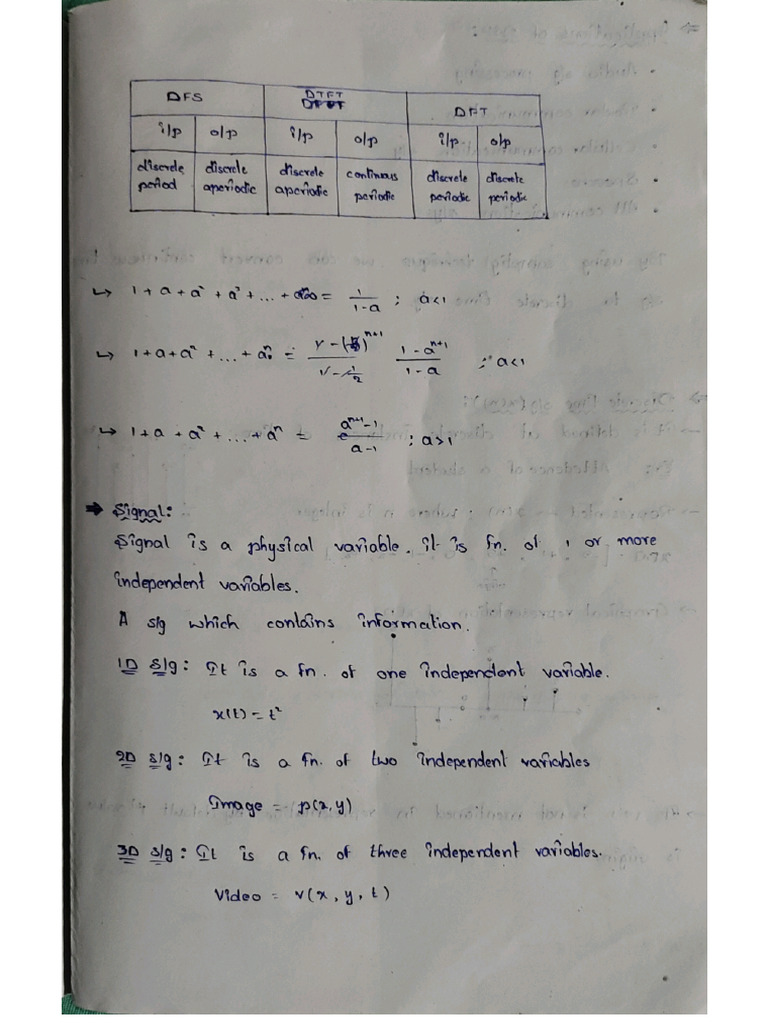 DFS DTFT DFT
i/p o/p i/p o/p i/p o/p
discrete period discrete aperiodic discrete aperiodic continuous periodic discrete periodic discrete periodic
↳ 1 + a + a² + a³ + ... + ∞ = 1/(1-a) ; a<1
↳ 1 + a + a² + ... + aⁿ = (1-aⁿ⁺¹)/(1-a) ; a<1
↳ 1 + a + a² + ... + aⁿ = (aⁿ⁺¹-1)/(a-1) ; a>1
⇒ Signal:
Signal is a physical variable. it is fn. of 1 or more
independent variables.
A s/g which contains information.
1D s/g: It is a fn. of one independent variable.
x(t) = t²
2D s/g: It is a fn. of two independent variables
Image = p(x,y)
3D s/g: It is a fn. of three independent variables.
Video = v(x, y, t)